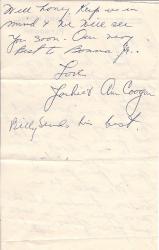 Well honey keep us in
mind & we will see
you soon. Our very
best to Bonna Jr..
Love
Jackie & Ann Coogan
Billy sends his best.